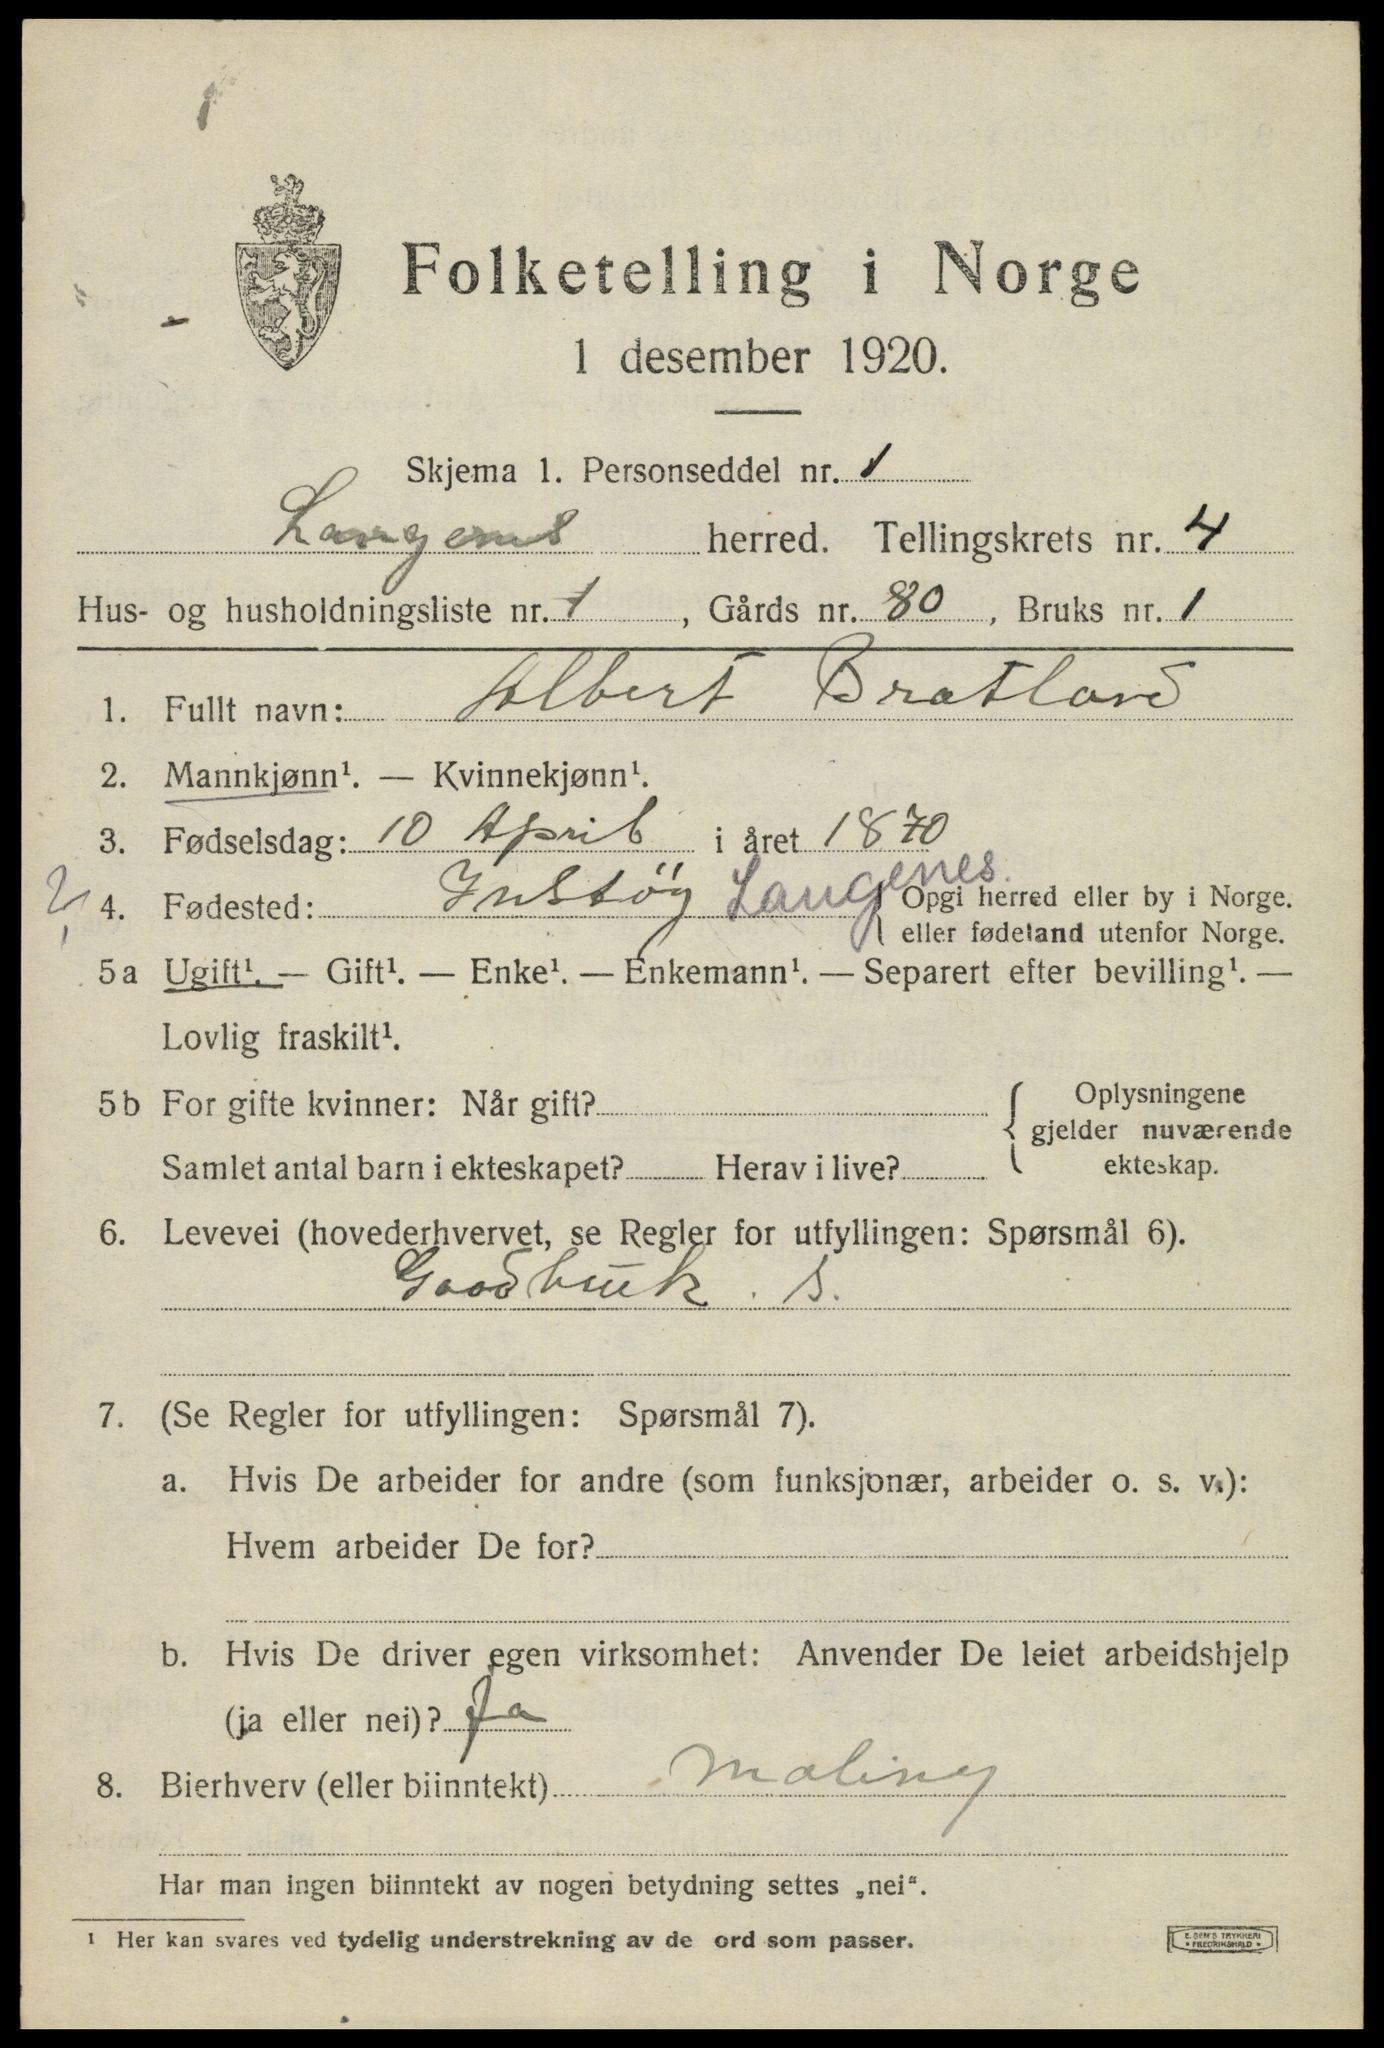 Folketelling i Norge
1 desember 1920.
Skjema 1. Personseddel nr. 1
Langenes herred. Tellingskrets nr. 4
Hus- og husholdningsliste nr. 1, Gårds nr. 80, Bruks nr. 1
1. Fullt navn: Albert Bratland
2. Mannkjønn¹. — Kvinnekjønn¹.
3. Fødselsdag: 10 April i året 1870
4. Fødested: Instøy Langenes. Opgi herred eller by i Norge.
eller fødeland utenfor Norge.
5 a Ugift¹. — Gift¹. — Enke¹. — Enkemann¹. — Separert efter bevilling¹. —
Lovlig fraskilt¹.
5 b For gifte kvinner: Når gift?
Samlet antal barn i ekteskapet? Herav i live?
Oplysningene
gjelder nuværende
ekteskap.
6. Levevei (hovederhvervet, se Regler for utfyllingen: Spørsmål 6).
Goodbruk. S.
7. (Se Regler for utfyllingen: Spørsmål 7).
a. Hvis De arbeider for andre (som funksjonær, arbeider o. s. v.):
Hvem arbeider De for?
b. Hvis De driver egen virksomhet: Anvender De leiet arbeidshjelp
(ja eller nei)? Ja
8. Bierhverv (eller biinntekt) Maling
Har man ingen biinntekt av nogen betydning settes „nei“.
¹ Her kan svares ved tydelig understrekning av de ord som passer.
E. SEM'S TRYKKERI
• FREDRIKSHALD •